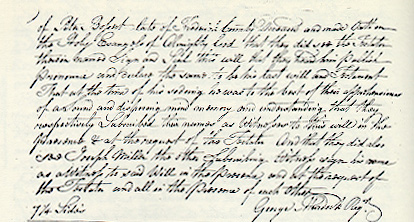 of Peter Defort late of Frederick County deceased and made Oath on
the Holy Evangels of Almighty God that they did see the Testator
therein named Sign and Seal this will that they heard him publish
pronounce and declare the same to be his last will and Testament
that at the time of his so doing he was to the best of their apprehensions
of a Sound and disposing mind memory and understanding that they
respectively Subscribed their names as Witnesses to this will in the
presence & at the request of the Testator And that they did also
see Joseph the other Subscribing Witness sign his name
as a Witness to said Will in the presence and at the request of
the Testator and all in the Presence of each other
George Murdoch Regr
7¼ Sides